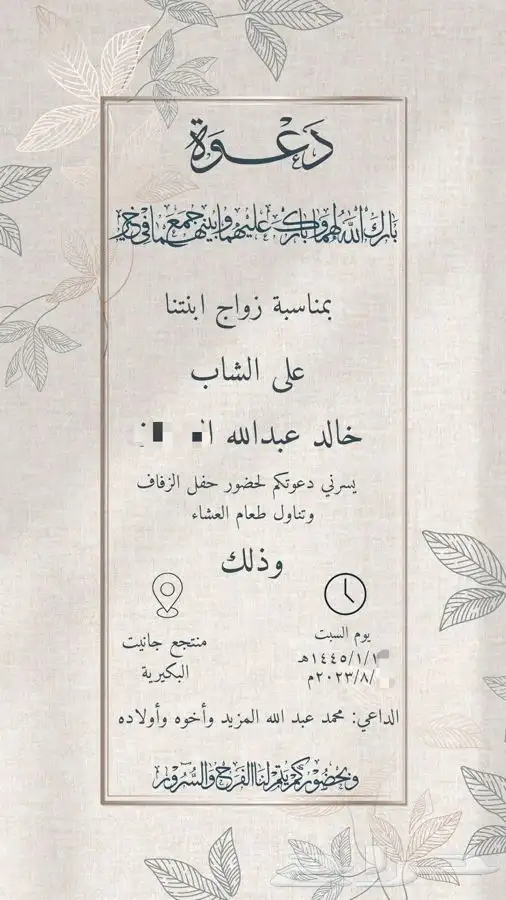 دَعْوَة
بارك الله لهما وبارك عليهما وجمع بينهما في خير
بمناسبة زواج ابنتنا
على الشاب
خالد عبدالله
يسرني دعوتكم لحضور حفل الزفاف
وتناول طعام العشاء
وذلك
يوم السبت
١٤٤٥/١/١هـ
٢٠٢٣/٨/م
منتجع جانيت
البكيرية
الداعي: محمد عبد الله المزيد وأخوه وأولاده
وبحضوركم يتم لنا الفرح والسرور